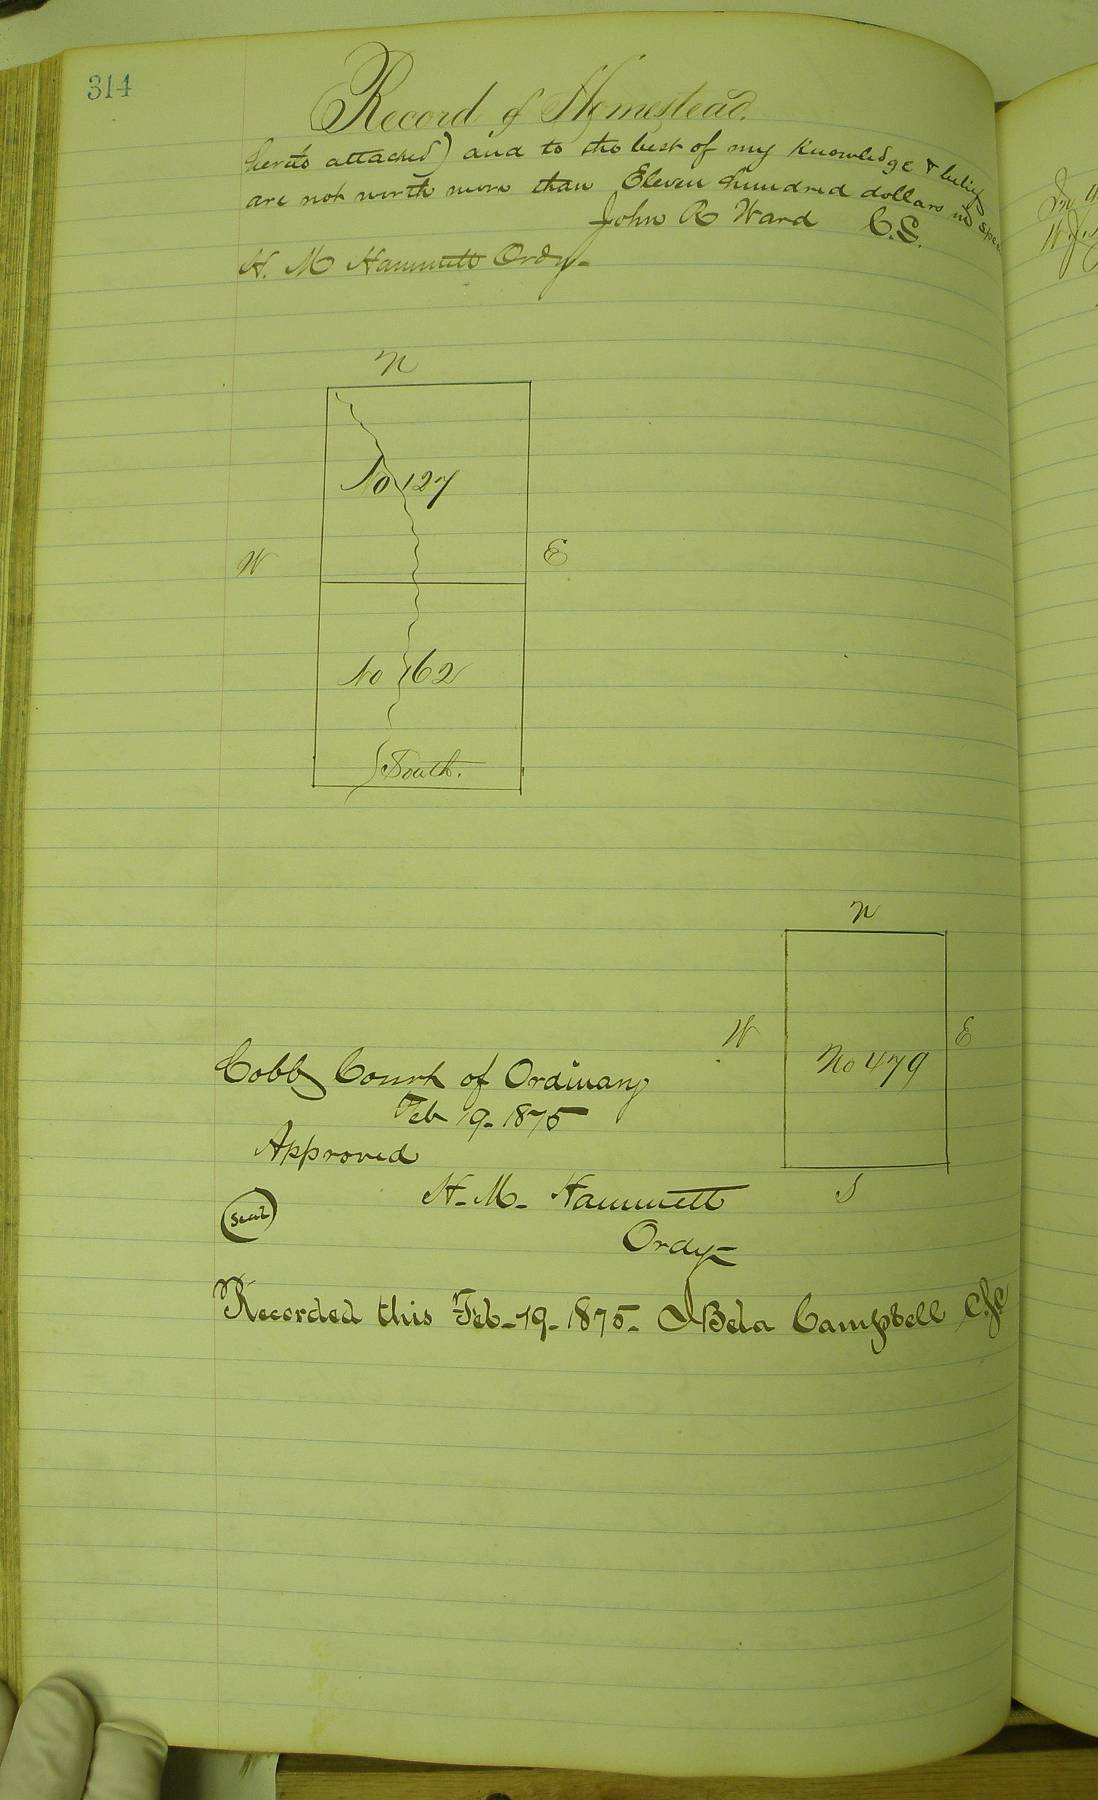 314
Record of Homestead.
hereto attached) and to the best of my Knowledge & belief
are not worth more than Eleven hundred dollars in spec
John R Ward C.S.
H. M Hammett Ordy-
N
No 127
W
E
No 162
South.
N
W
E
No 479
S
Cobb Court of Ordinary
Feb 19- 1875
Approved
H- M- Hammett
Seal
Ordy-
Recorded this Feb-19-1875- J Bela Campbell